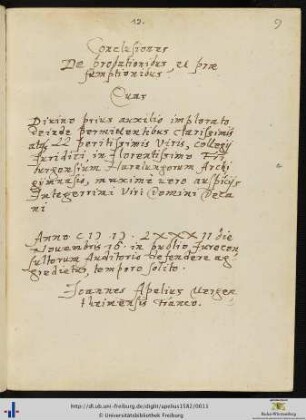 19.
9
Conclusiones
De probationibus, et præ
sumptionibus.
Quas
Divino prius auxilio implorato
deinde permittentibus clarissimis
atq; LL peritissimis Viris, collegij
Juridici, in florentissimo Fri
burgensium Archi
gymnasio, maxime vero auspicijs
Integerrimi Viri Domini Deca
ni
Anno CIƆ IƆ LXXXII die
Novembris 16. in publico Jurecon
sultorum Auditorio defendere ag
gredietur, tempore solito.
Joannes Apelius Mergen
theimensis Franco.
http://dl.ub.uni-freiburg.de/diglit/apelius1582/0011
© Universitätsbibliothek Freiburg
Baden-Württemberg